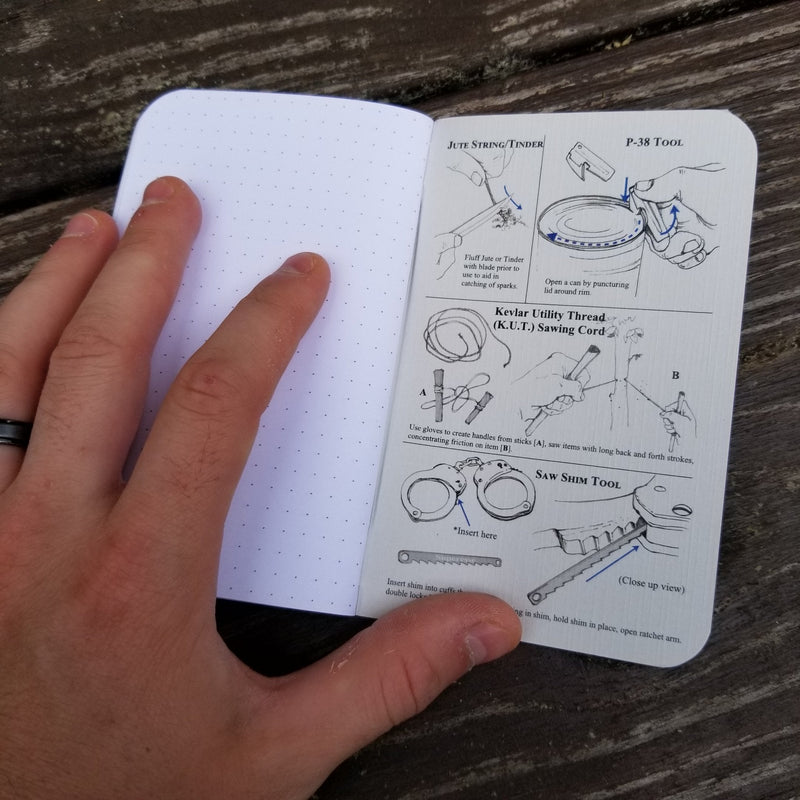 JUTE STRING/TINDER
Fluff Jute or Tinder
with blade prior to
use to aid in
catching of sparks.
P-38 TOOL
Open a can by puncturing
lid around rim.
Kevlar Utility Thread
(K.U.T.) Sawing Cord
A
B
Use gloves to create handles from sticks [A], saw items with long back and forth strokes,
concentrating friction on item [B].
SAW SHIM TOOL
*Insert here
(Close up view)
Insert shim into cuffs
double in shim, hold shim in place, open ratchet arm.